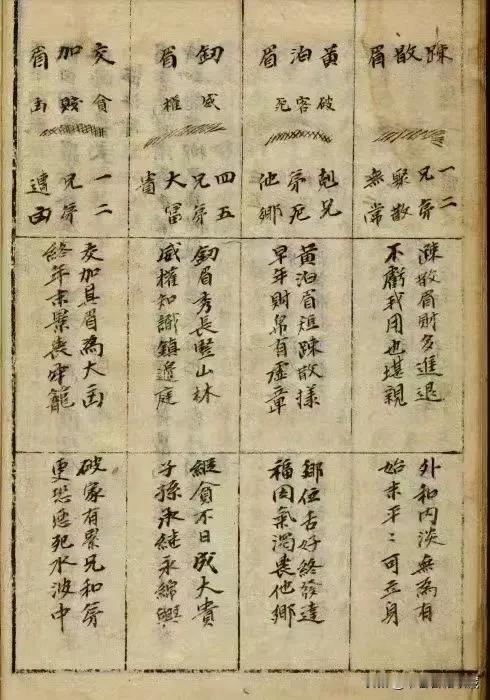 疎散眉
一二兄弟聚散無常
疎散眉財多進退
不虧我用也堪親
外和内淡無為有
始末平二可立身
黃泊眉
破客死
剋兄弟死他鄉
黃泊眉短疎散樣
早年財帛有虛章
位古好終發達
福因氣濁喪他鄉
釰眉
威權
四五兄弟大富貴
釰眉秀長豎山林
威權知識鎮邊庭
縱貧不日成大貴
子孫承継永綿興
交加眉
貪賍凶
一二兄弟遭凶
交加具眉為大凶
終年末景喪牢籠
破家有累兄和弟
更恐惡死水波中